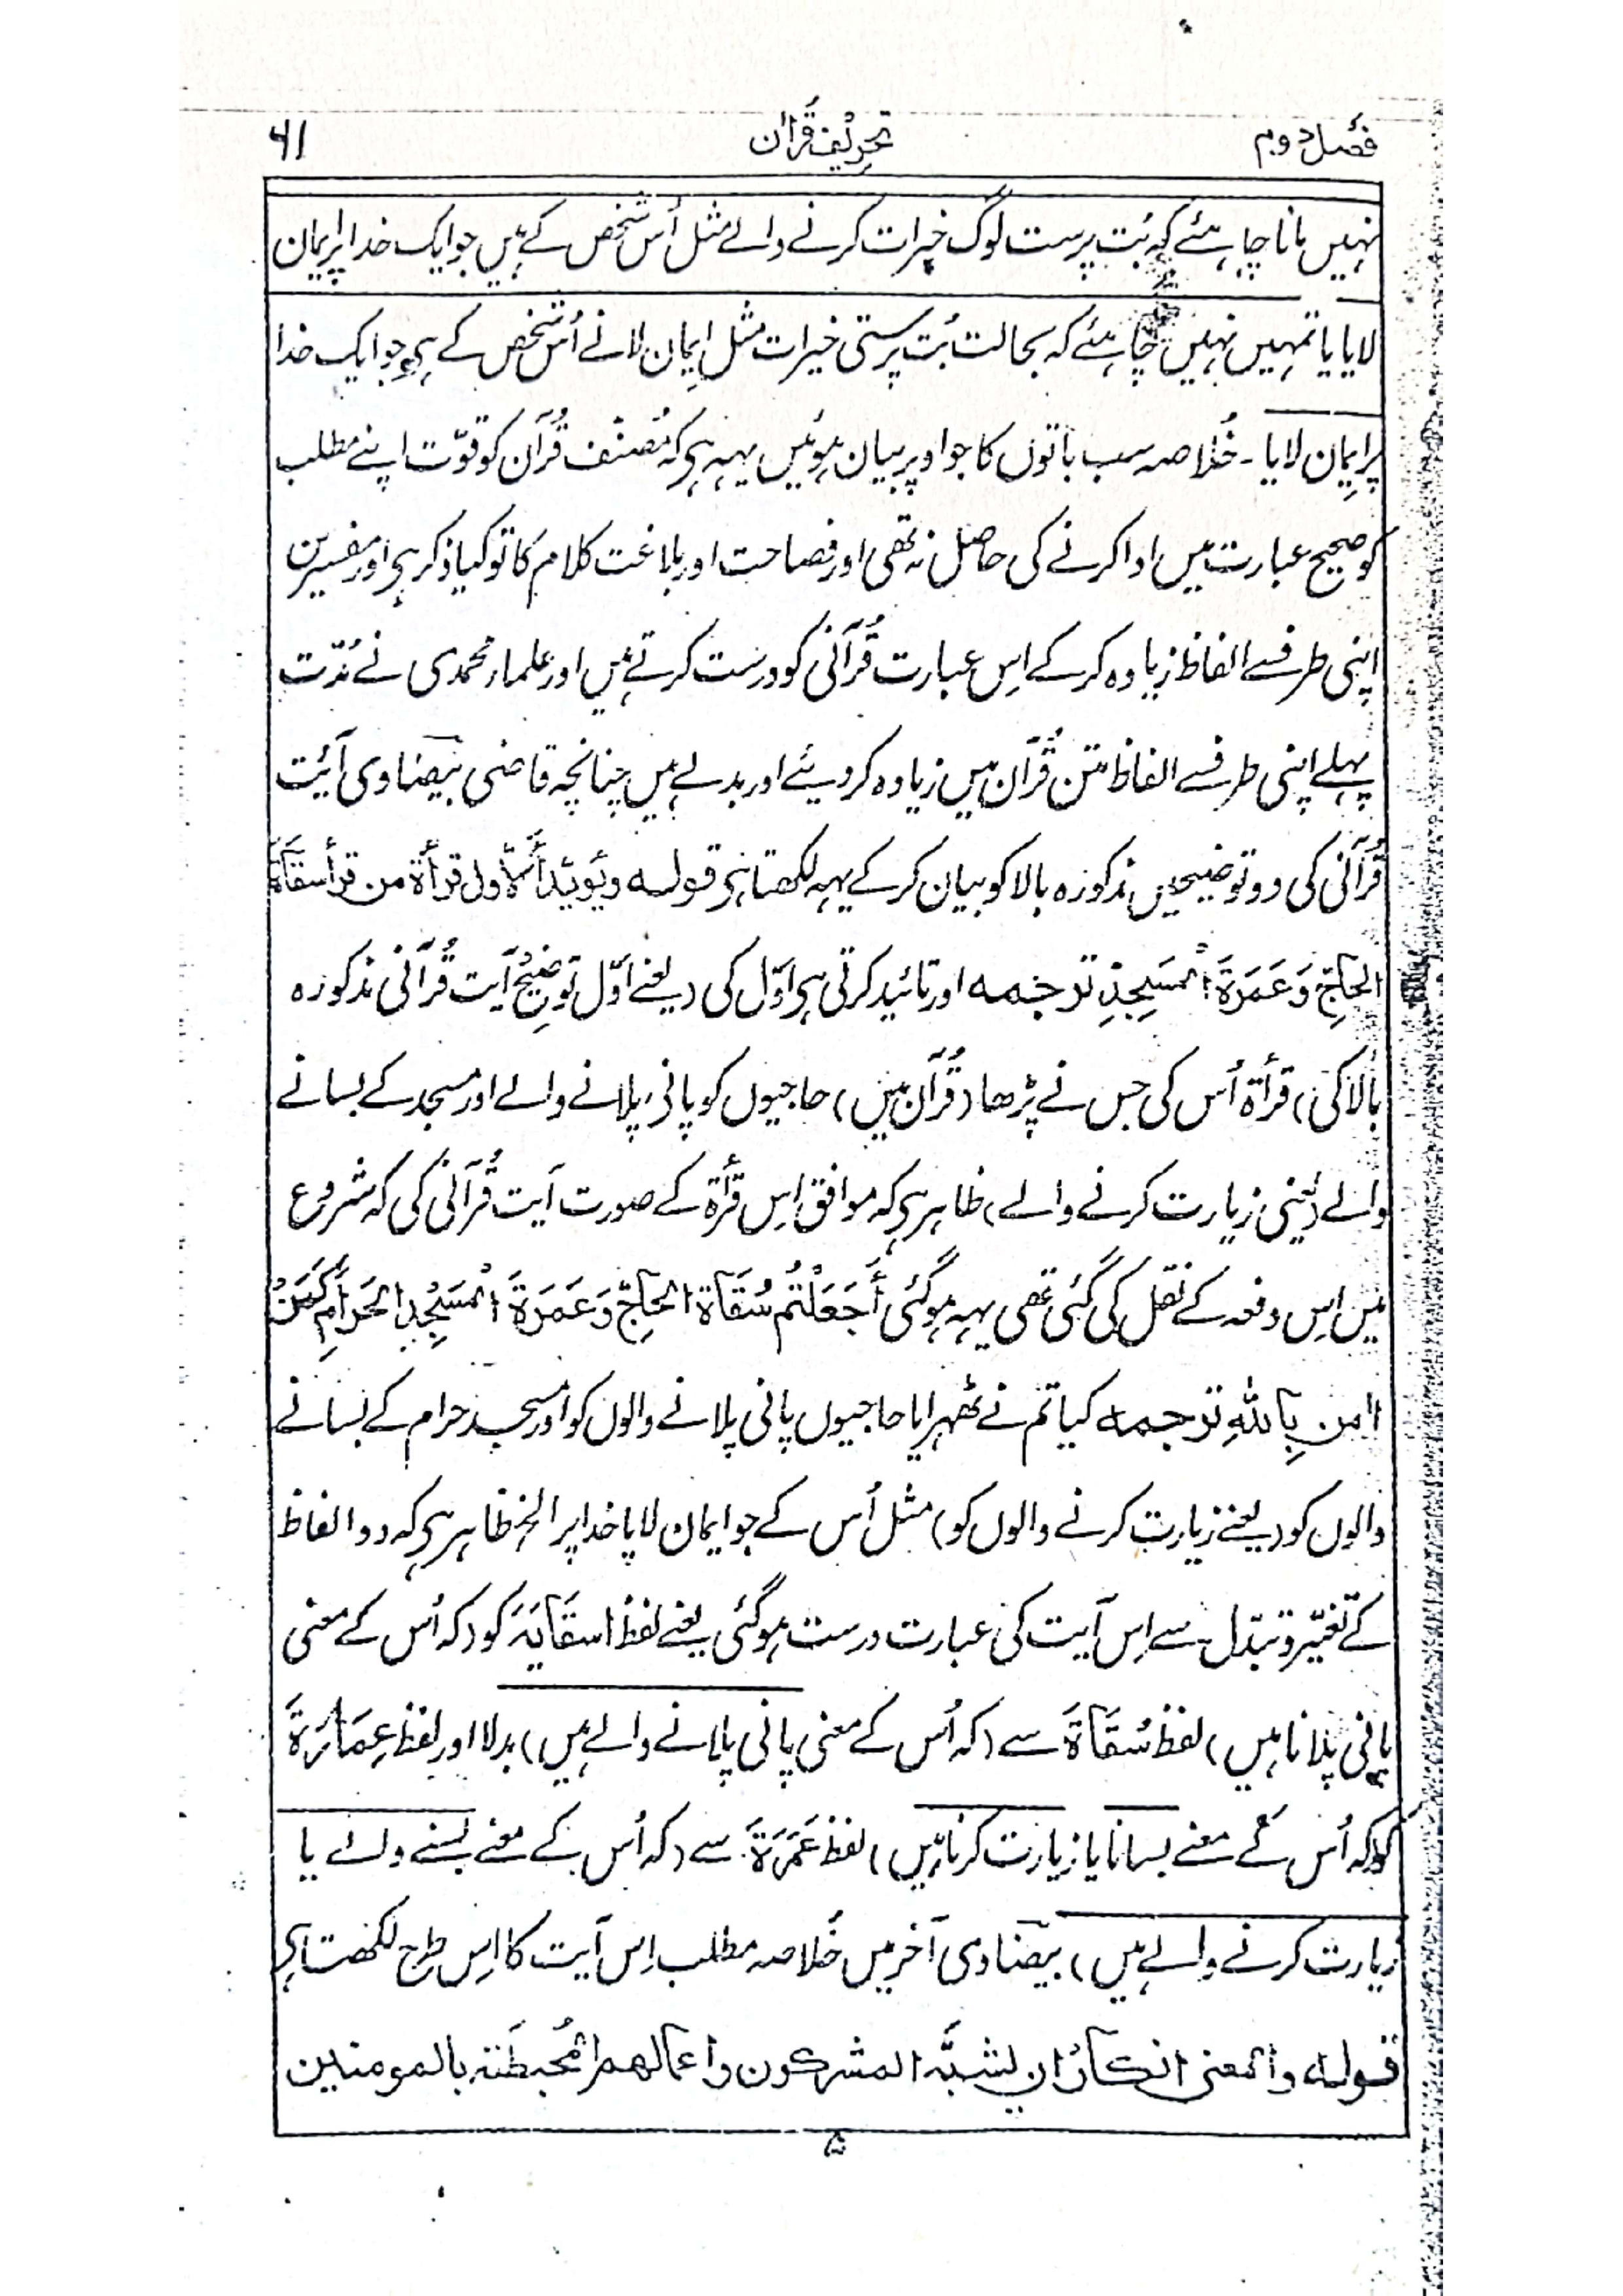 فصل دوم تحریف قرآن ۶۱
نہیں بانا چاہئے کہ بُت پرست لوگ خیرات کرنے والے مثل اُس شخص کے ہیں جو ایک خدا پر ایمان
لایا یا تمہیں نہیں چاہئے کہ بحالت بُت پرستی خیرات مثل ایمان لانے اُس شخص کے ہی جو ایک خدا
پر ایمان لایا ۔ خُلاصہ سب باتوں کا جو اوپر بیان ہوئیں یہہ ہی کہ مُصنّف قُرآن کو قوّت اپنے مطلب
کو صحیح عبارت میں ادا کرنے کی حاصل نہ تھی اور فصاحت اور بلاغت کلام کا تو کیا ذکر ہی اور مفسرین
اپنی طرف سے الفاظ زیادہ کر کے اِس عبارت قُرآنی کو درست کرتے ہیں اور علماء محمدی نے مُدّت
پہلے اپنی طرف سے الفاظ متن قُرآن میں زیادہ کردیئے اور بدلے ہیں چنانچہ قاضی بیضاوی آیت
قُرآنی کی دو توضیحیں مذکورہ بالا کو بیان کر کے یہہ لکھتا ہی قولہ ویُویّد الاوّل قرأة من قرأ سقاة
الحاجِّ وَعَمَرَةَ المَسجِدِ ترجمہ اور تائید کرتی ہی اوّل کی (یعنے اوّل توضیح آیت قُرآنی مذکورہ
بالا کی) قرأة اُس کی جس نے پڑھا (قُرآن میں) حاجیوں کو پانی پلانے والے اور مسجد کے بسانے
والے (یعنی زیارت کرنے والے) ظاہر ہی کہ موافق اِس قرأة کے صورت آیت قُرآنی کی کہ شروع
میں اِس دفعہ کے نقل کی گئی تھی یہہ ہوگئی أَجَعَلْتُم سُقَاةَ الحَاجِّ وَعَمَرَةَ المَسْجِدِ الحَرَامِ كَمَنْ
اامن بِاللهِ ترجمہ کیا تم نے ٹھہرایا حاجیوں پانی پلانے والوں کو اور مسجد حرام کے بسانے
والوں کو (یعنے زیارت کرنے والوں کو) مثل اُس کے جو ایمان لایا خدا پر الخ ظاہر ہی کہ دو الفاظ
کے تغیّر و تبدّل سے اِس آیت کی عبارت درست ہوگئی یعنے لفظ سقَایَةَ کو (کہ اُس کے معنی
پانی پلانا ہیں) لفظ سُقَاةَ سے (کہ اُس کے معنی پانی پلانے والے ہیں) بدلا اور لفظ عِمَارَةَ
کو (کہ اُس کے معنے بسانا یا زیارت کرنا ہیں) لفظ عَمَرَةَ سے (کہ اُس کے معنے بسنے والے یا
زیارت کرنے والے ہیں) بیضاوی آخر میں خُلاصہ مطلب اِس آیت کا اِس طرح لکھتا ہی
قولہ والمعنی انکارُ ان یشبّہ المشرکون واعمالھم المُحبطَتہ بالمومنین